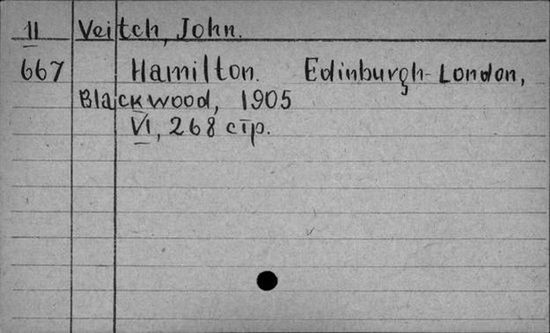 II Veitch, John.
667 Hamilton. Edinburgh-London,
Blackwood, 1905
VI, 268 стр.